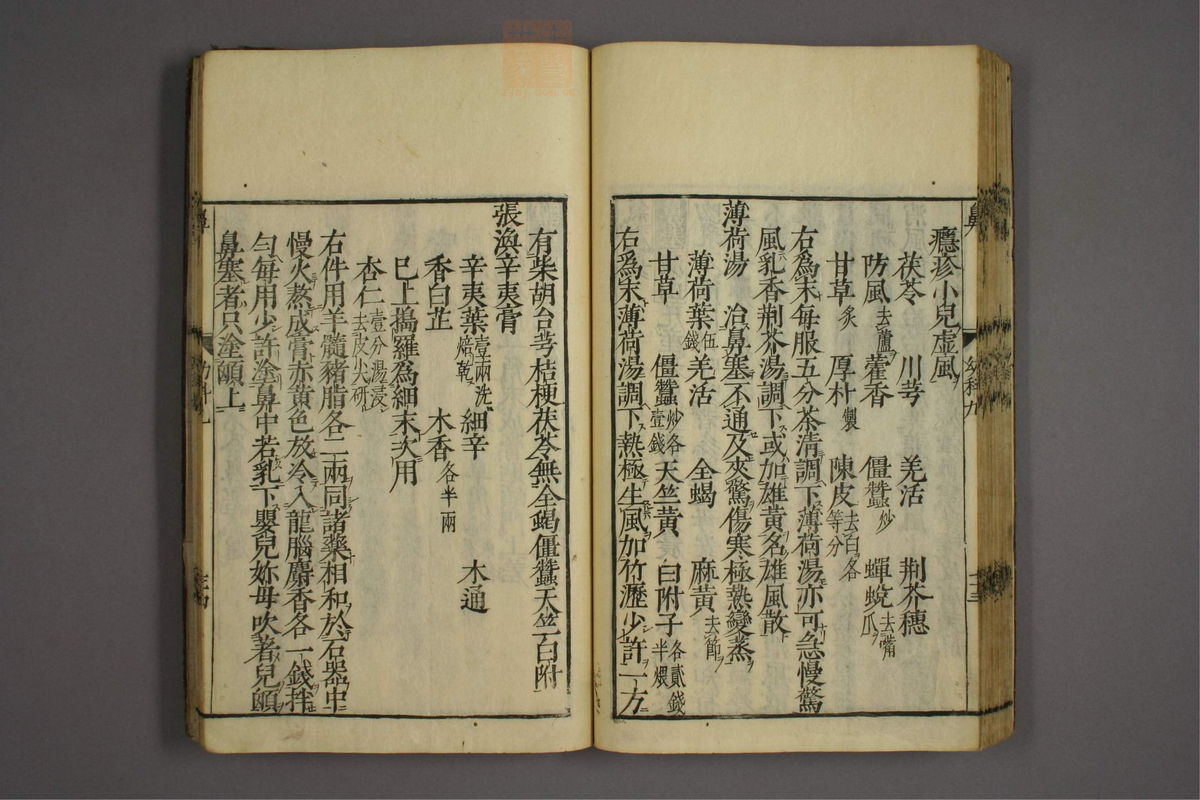 癮疹小兒虛風
茯苓 川芎 羌活 荆芥穗
防風去蘆 藿香 僵蠶炒 蟬蛻去嘴爪
甘草炙 厚朴製 陳皮去白各等分
右為末每服五分茶清調下薄荷湯亦可急慢驚
風乳香荆芥湯調下或加雄黃名雄風散
薄荷湯 治鼻塞不通及夾驚傷寒極熱變蒸
薄荷葉伍錢 羌活 全蝎 麻黃去節
甘草 僵蠶炒各壹錢 天竺黃 白附子各貳錢半煨
右爲末薄荷湯調下熱極生風加竹瀝少許一方
有柴胡台芎桔梗茯苓無全蝎僵蠶天竺白附
張渙辛夷膏
辛夷葉壹兩洗焙乾 細辛 木通
香白芷 木香各半兩
已上搗羅爲細末次用
杏仁壹分湯浸去皮尖研
右件用羊髓豬脂各二兩同諸藥相和於石器中
慢火熬成膏赤黃色放冷入龍腦麝香各一錢拌
勻每用少許塗鼻中若乳下嬰兒妳母吹著兒顖
鼻塞者只塗顖上
鼻
幼科九